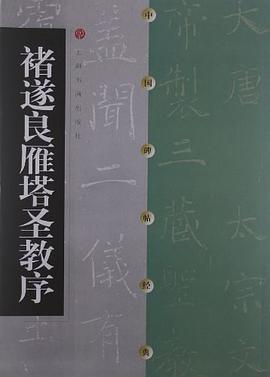 大唐太宗文
帝製三藏聖教
中国碑帖经典
蓋聞二儀有
上海书画出版社
褚遂良雁塔圣教序